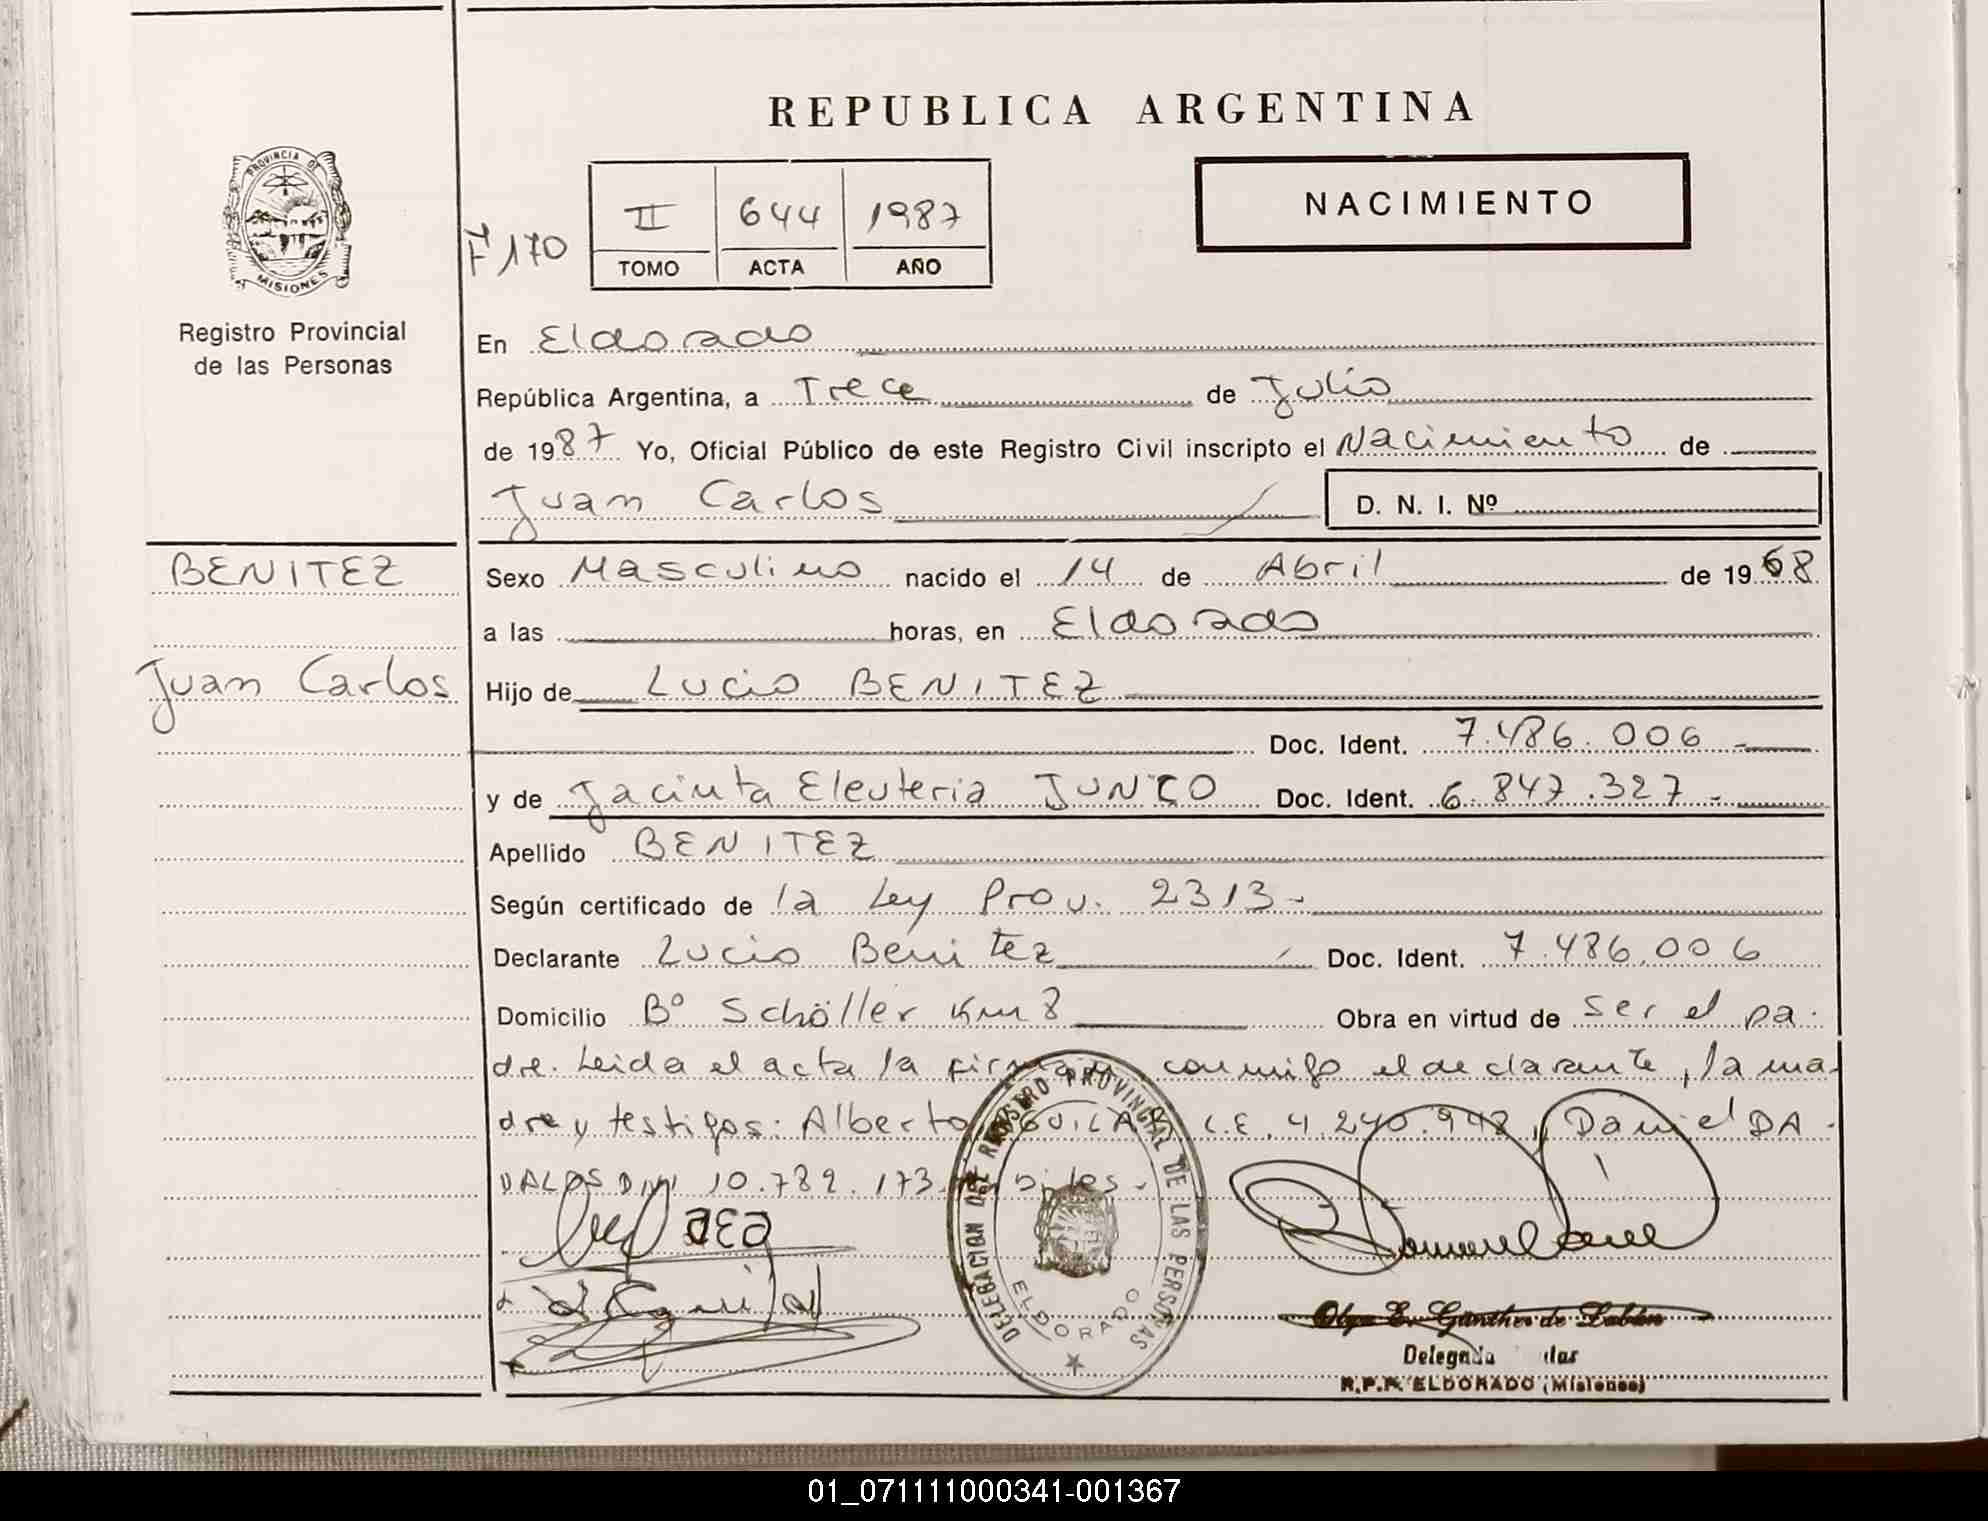 REPUBLICA ARGENTINA
PROVINCIA DE
MISIONES
Registro Provincial
de las Personas
Fº 170
II 644 1987
TOMO ACTA AÑO
NACIMIENTO
En Eldorado
República Argentina, a Trece de Julio
de 1987 Yo, Oficial Público de este Registro Civil inscripto el Nacimiento de
Juan Carlos D. N. I. Nº
BENITEZ
Juan Carlos
Sexo Masculino nacido el 14 de Abril de 1968
a las horas, en Eldorado
Hijo de Lucio BENITEZ
Doc. Ident. 7.486.006
y de Jacinta Eleuteria Doc. Ident. 6.847.327
Apellido BENITEZ
Según certificado de la Ley Prov. 2313
Declarante Lucio Benitez Doc. Ident. 7.486.006
Domicilio Bº Schöller Km 8 Obra en virtud de ser el pa-
dre. Leida el acta la firman conmigo el declarante, la ma-
dre y testigos: Alberto AGUILAR L.E. 4.240.948, Daniel DA-
VALOS DNI 10.789.173.
DELEGACION DEL REGISTRO PROVINCIAL DE LAS PERSONAS
ELDORADO
Olga E. Günther de
Delegada
R.P.P. ELDORADO (Misiones)
01_071111000341-001367